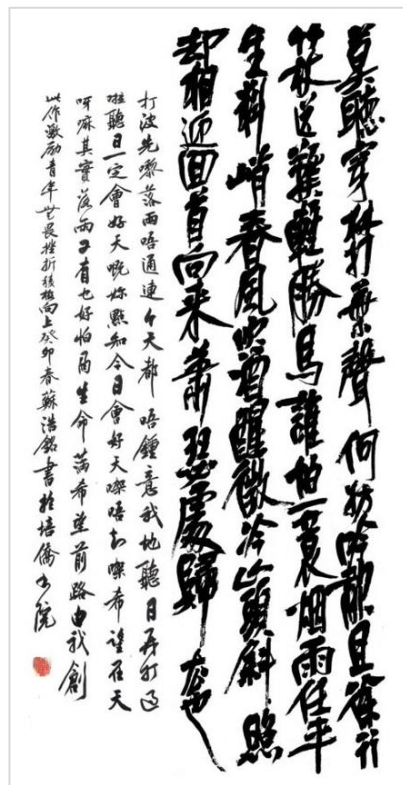 莫聽穿林打葉聲何妨吟嘯且徐行
竹杖芒鞋輕勝馬誰怕一蓑烟雨任平
生料峭春風吹酒醒微冷山頭斜照
却相迎回首向来蕭瑟處歸
打波先嚟落雨唔通連个天都唔鍾意我地聽日再打過
啦聽日一定會好天嘅你點知今日會好天㗎唔知㗎希望在天
呀嘛其實落雨又有乜好怕因生命滿希望前路由我創
此作激勵青年無畏挫折積極向上癸卯春蘇浩銘書於培僑書院